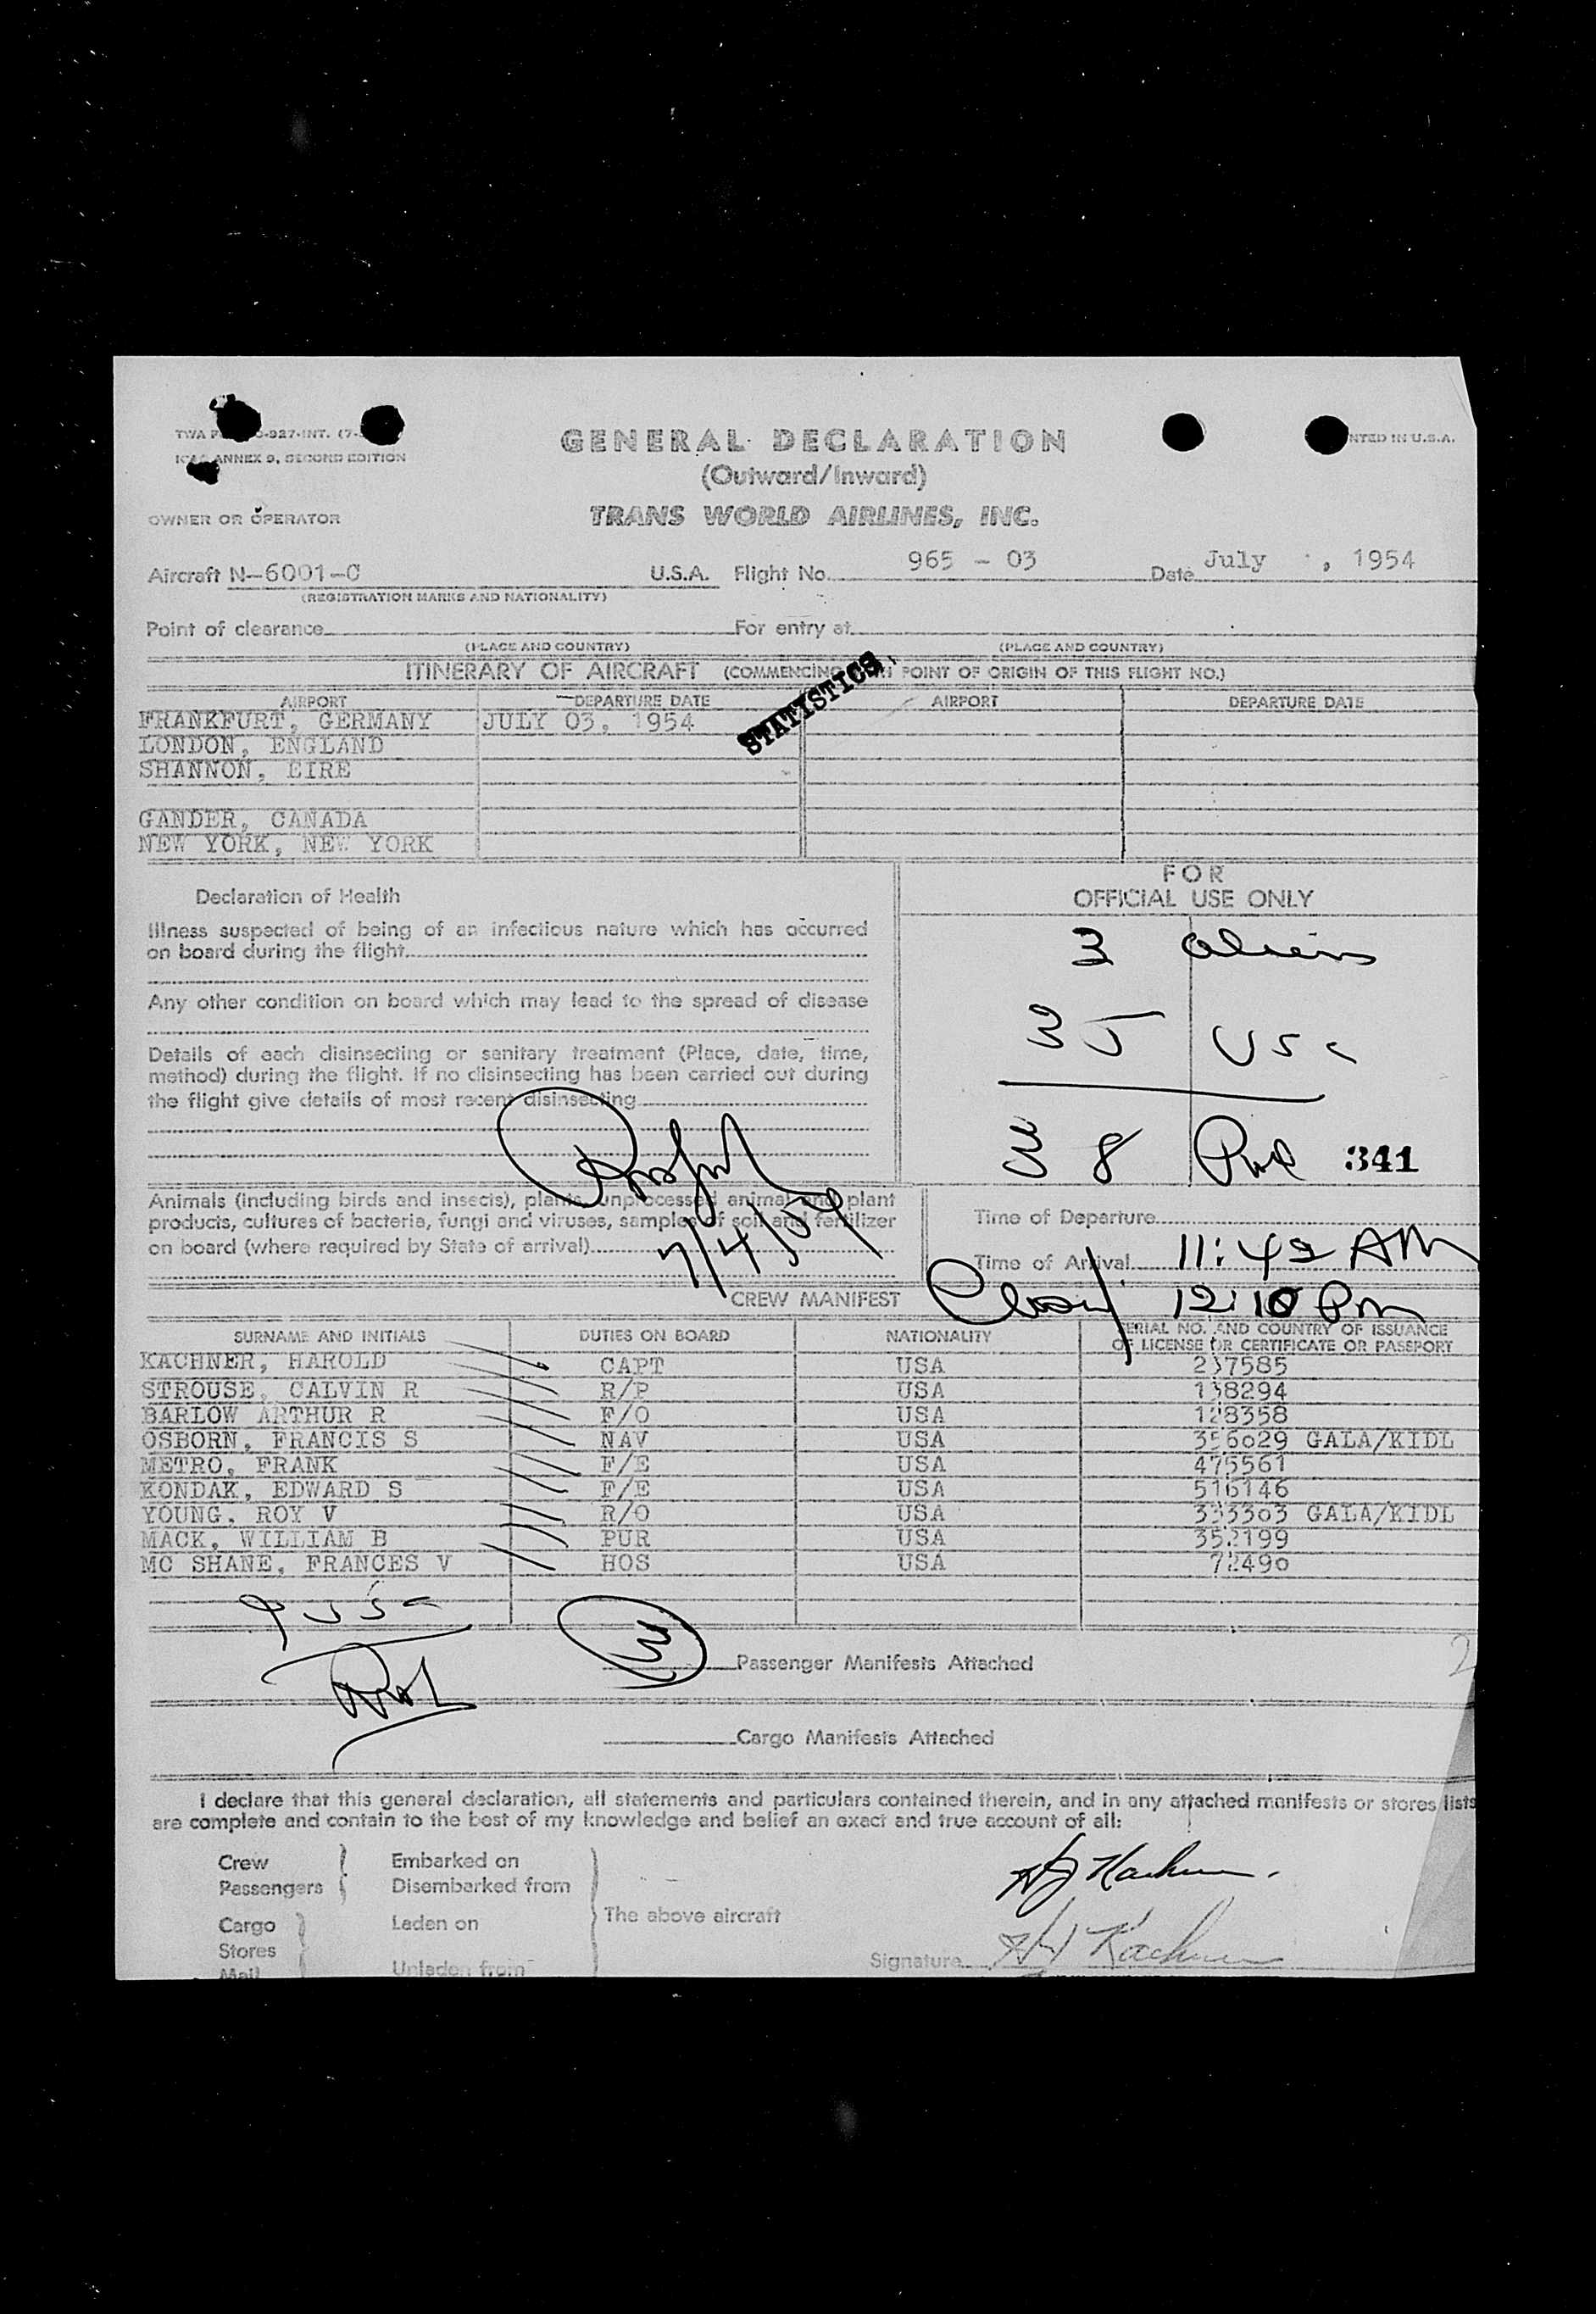 ANNEX 9, SECOND EDITION
GENERAL DECLARATION
(Outward/Inward)
TRANS WORLD AIRLINES, INC.
OWNER OR OPERATOR
Aircraft N-6001-C U.S.A. Flight No. 965 - 03 Date July , 1954
(REGISTRATION MARKS AND NATIONALITY)
Point of clearance For entry at
(PLACE AND COUNTRY) (PLACE AND COUNTRY)
ITINERARY OF AIRCRAFT (COMMENCING POINT OF ORIGIN OF THIS FLIGHT NO.)
STATISTICS
AIRPORT DEPARTURE DATE AIRPORT DEPARTURE DATE
FRANKFURT, GERMANY JULY 03, 1954
LONDON, ENGLAND
SHANNON, EIRE
GANDER, CANADA
NEW YORK, NEW YORK
Declaration of Health
Illness suspected of being of an infectious nature which has occurred
on board during the flight
Any other condition on board which may lead to the spread of disease
Details of each disinsecting or sanitary treatment (Place, date, time,
method) during the flight. If no disinsecting has been carried out during
the flight give details of most recent disinsecting
FOR
OFFICIAL USE ONLY
3 aliens
35 USC
38 341
7/4/54
Animals (including birds and insects), plants, unprocessed animal and plant
products, cultures of bacteria, fungi and viruses, samples of soil and fertilizer
on board (where required by State of arrival)
Time of Departure
Time of Arrival 11:42 AM
12:10 PM
CREW MANIFEST
SURNAME AND INITIALS DUTIES ON BOARD NATIONALITY SERIAL NO. AND COUNTRY OF ISSUANCE
OF LICENSE OR CERTIFICATE OR PASSPORT
KACHNER, HAROLD CAPT USA 237585
STROUSE, CALVIN R R/P USA 138294
BARLOW ARTHUR R F/O USA 128358
OSBORN, FRANCIS S NAV USA 356029 GALA/KIDL
METRO, FRANK F/E USA 475561
KONDAK, EDWARD S F/E USA 516146
YOUNG, ROY V R/O USA 333303 GALA/KIDL
MACK, WILLIAM B PUR USA 352199
MC SHANE, FRANCES V HOS USA 72490
9 USC
3 Passenger Manifests Attached
2
Cargo Manifests Attached
I declare that this general declaration, all statements and particulars contained therein, and in any attached manifests or stores lists
are complete and contain to the best of my knowledge and belief an exact and true account of all:
Crew Embarked on
Passengers Disembarked from
The above aircraft
Cargo Laden on
Stores
Mail Unladen from
Signature H J Kachner